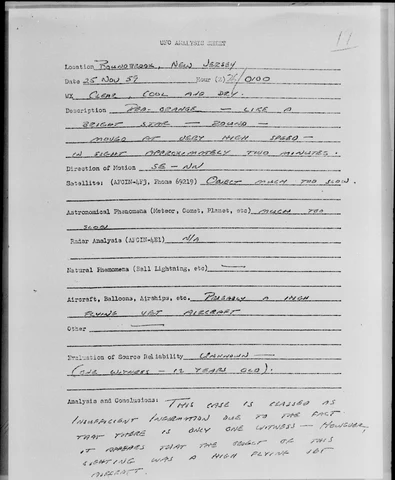 11
UFO ANALYSIS SHEET
Location Boundbrook, New Jersey
Date 25 Nov 59 Hour (Z) 0100
WX Clear, Cool and Dry.
Description Red-Orange - Like a
Bright Star - Round -
Moved at very high speed -
In sight approximately two minutes.
Direction of Motion SE - NW
Satellite: (AFCIN-4E3, Phone 69219) Object much too slow.
Astronomical Phenomena (Meteor, Comet, Planet, etc) Much too
slow
Radar Analysis (AFCIN-4E1) N/A
Natural Phenomena (Ball Lightning, etc) —
Aircraft, Balloons, Airships, etc. Probably a high
flying jet aircraft
Other —
Evaluation of Source Reliability Unknown —
(One witness - 12 years old).
Analysis and Conclusions: This case is classed as
insufficient information due to the fact
that there is only one witness - However,
it appears that the object of this
sighting was a high flying jet
aircraft.